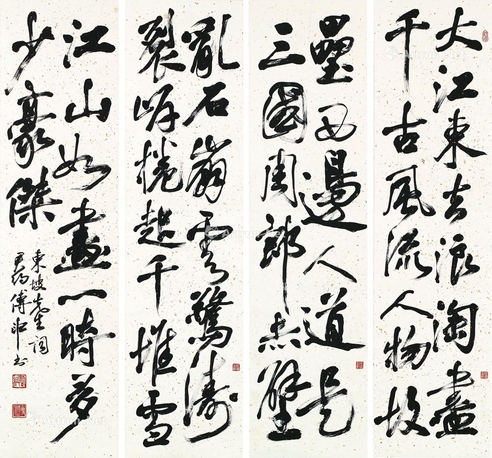 大江東去浪淘盡
千古風流人物故
壘西邊人道是
三國周郎赤壁
亂石崩雲驚濤
裂岸捲起千堆雪
江山如畫一時多
少豪傑
東坡先生詞
君約傅申書